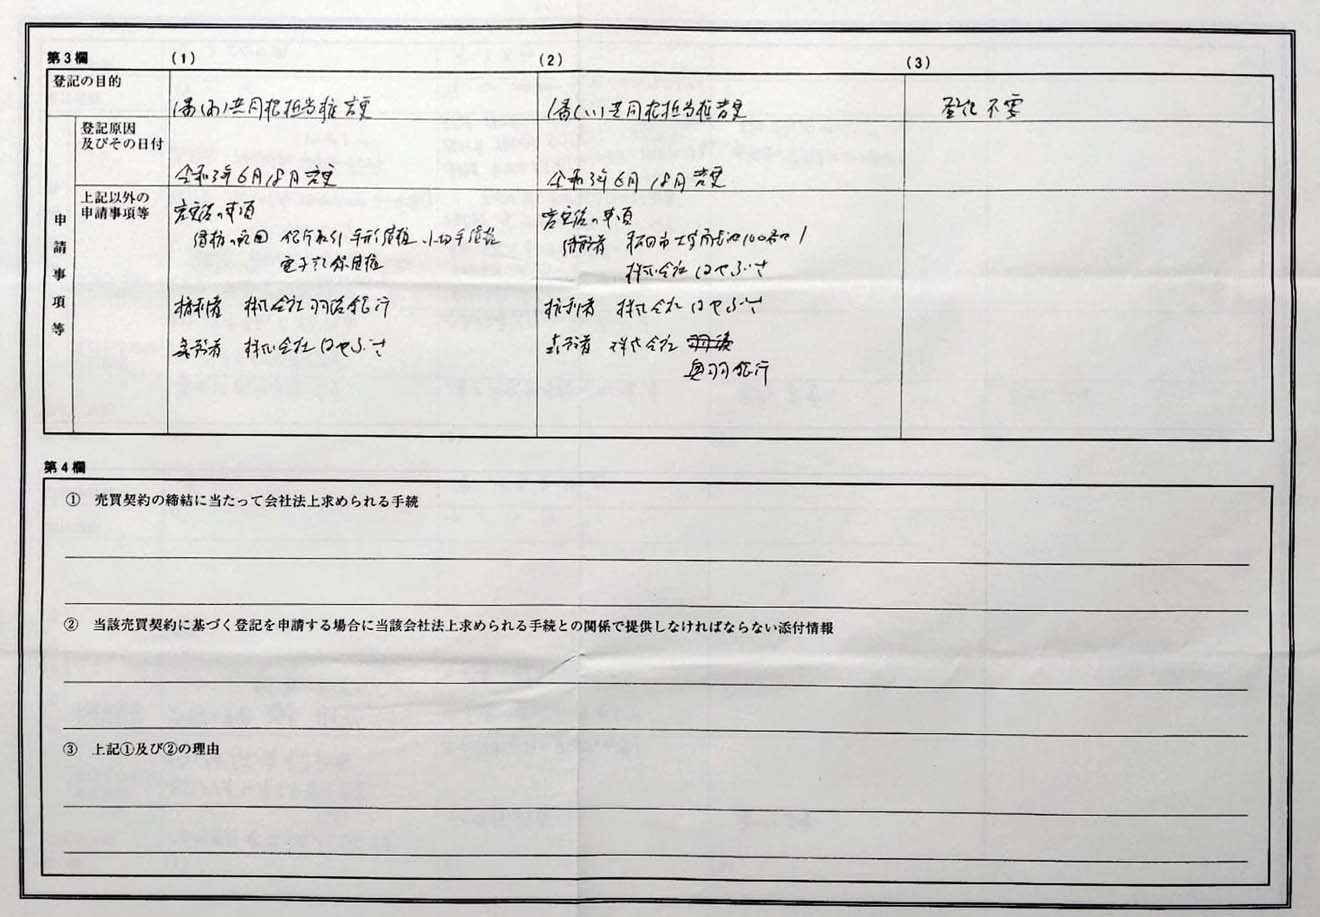 第3欄
(1)
(2)
(3)
登記の目的
1番(あ)共同根抵当権変更
1番(い)共同根抵当権変更
登記不要
申請事項等
登記原因
及びその日付
令和3年6月18日変更
令和3年6月18日変更
上記以外の
申請事項等
変更後の事項
債権の範囲 銀行取引 手形債権、小切手債権
電子記録債権
権利者 株式会社羽後銀行
義務者 株式会社はやぶさ
変更後の事項
債務者
株式会社はやぶさ
権利者 株式会社はやぶさ
義務者 株式会社
奥羽銀行
第4欄
① 売買契約の締結に当たって会社法上求められる手続
② 当該売買契約に基づく登記を申請する場合に当該会社法上求められる手続との関係で提供しなければならない添付情報
③ 上記①及び②の理由